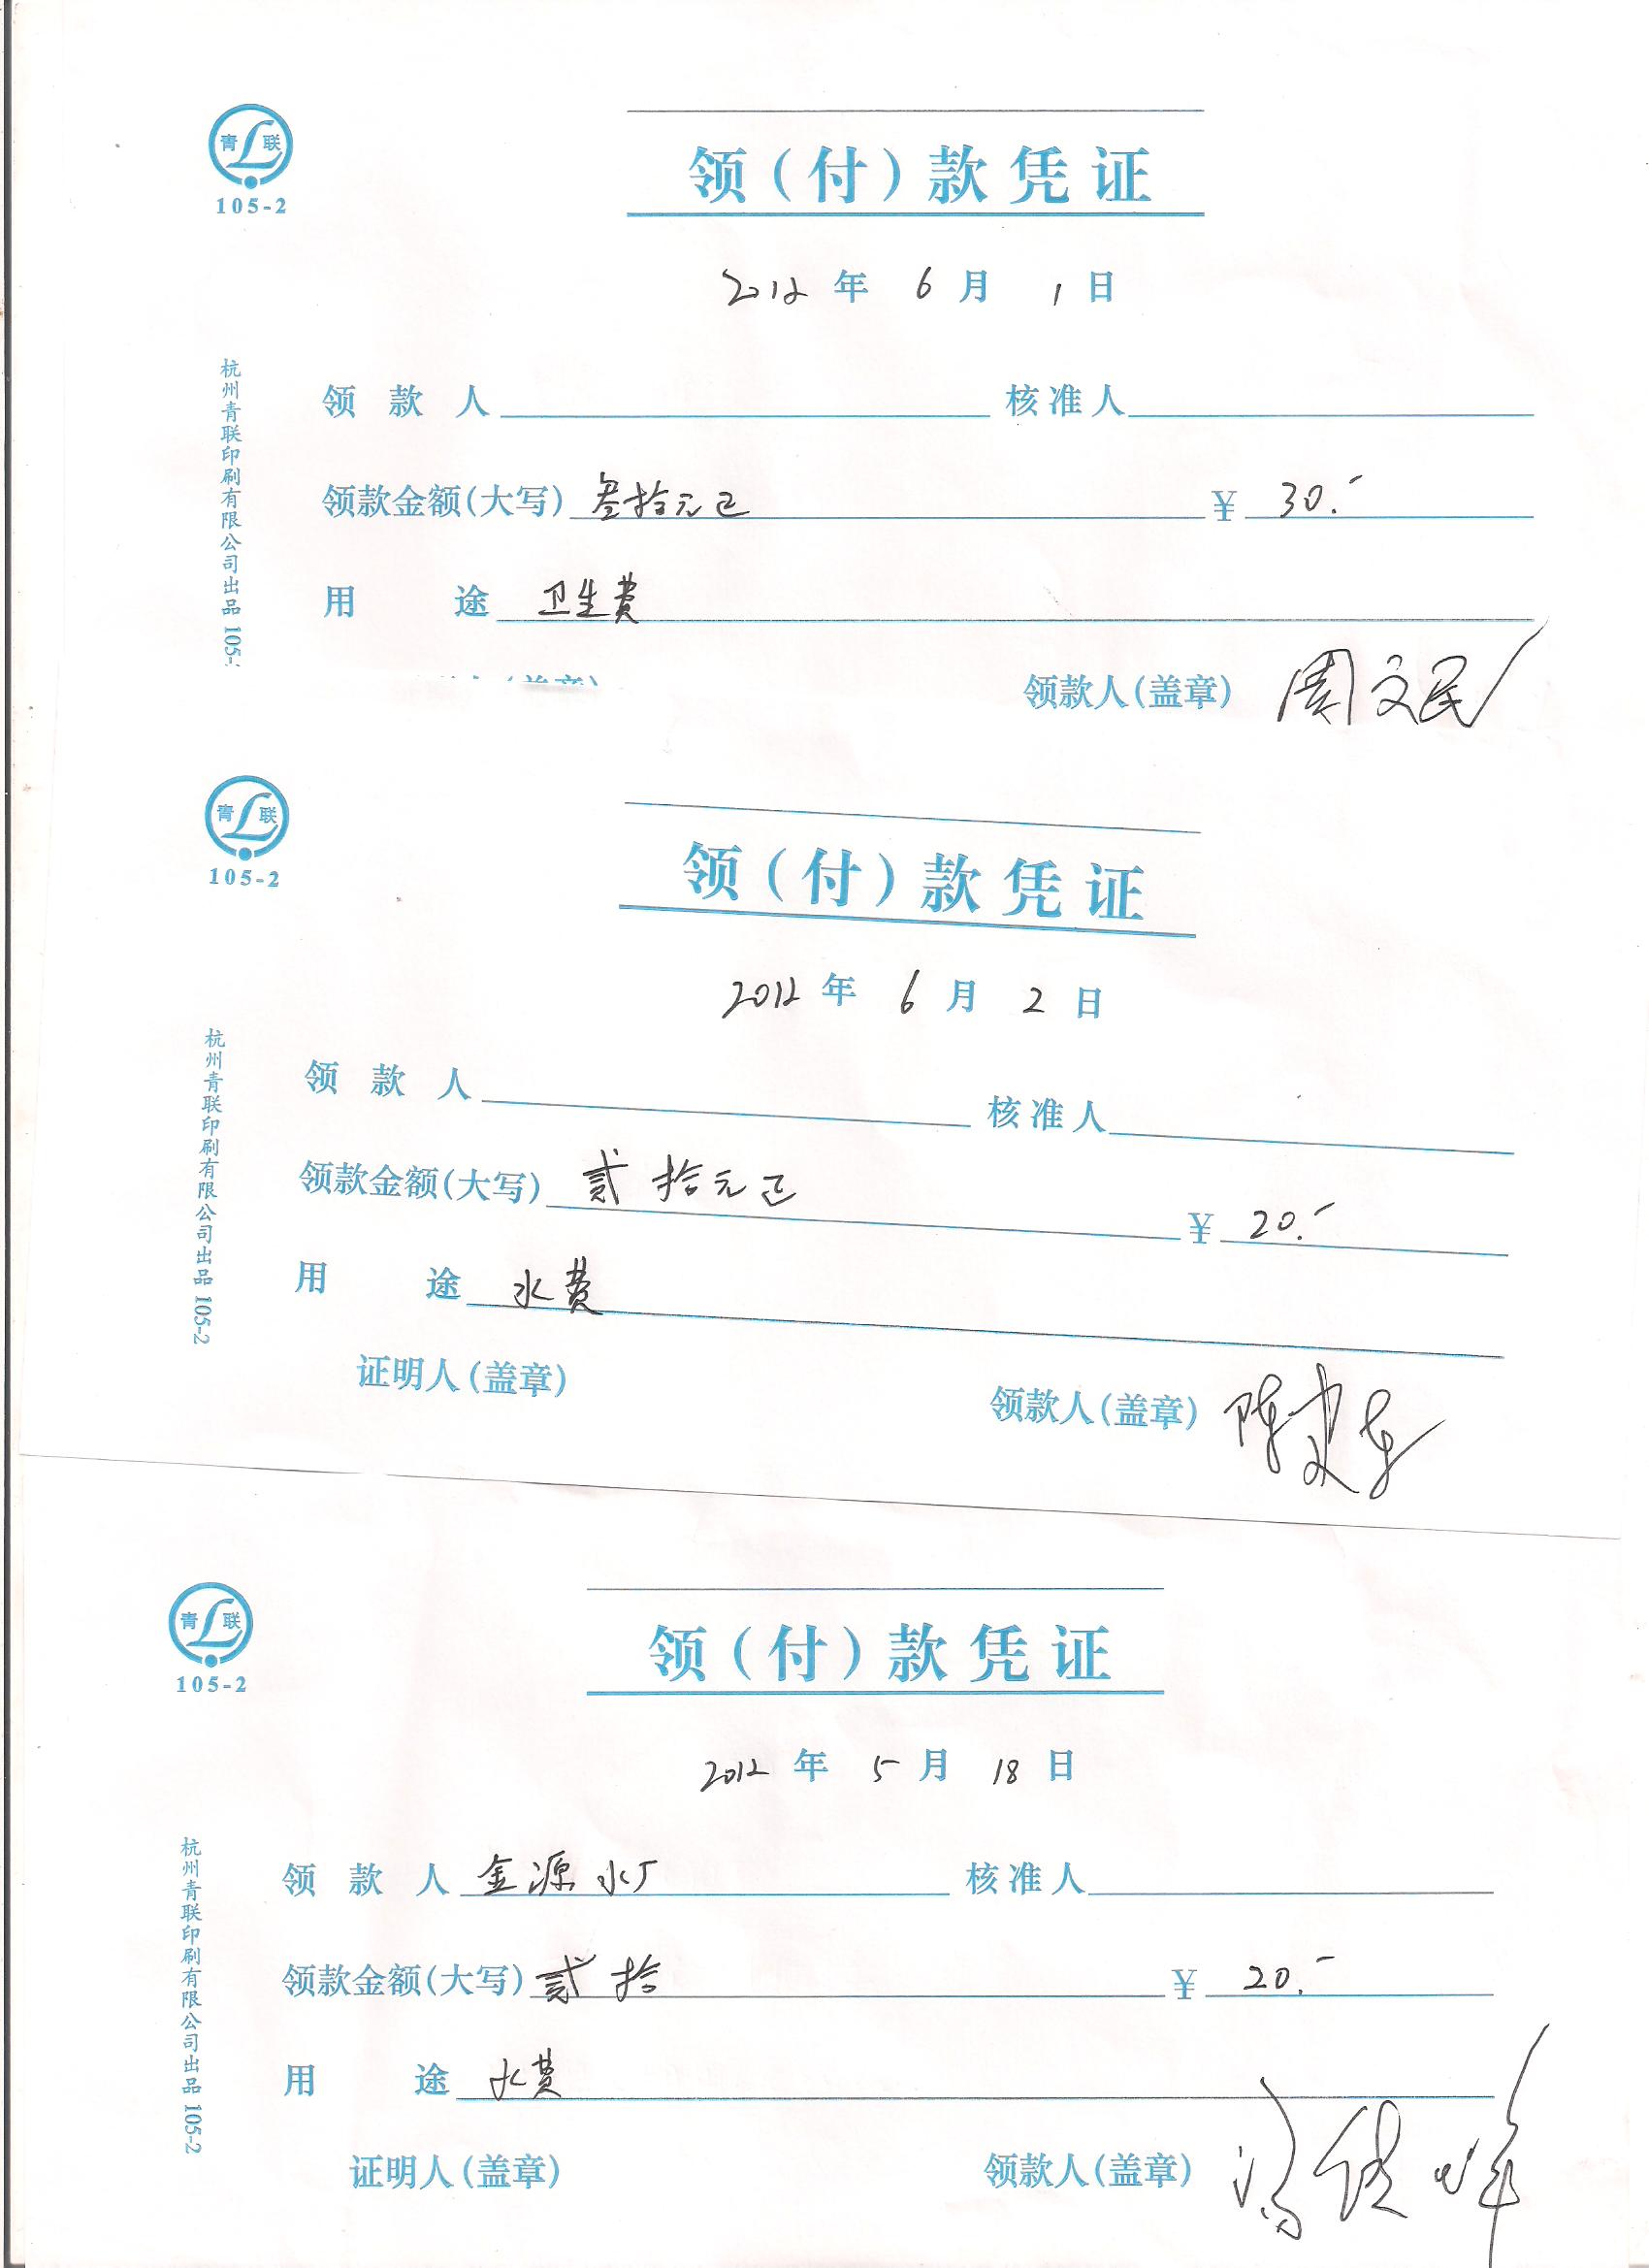 青 联
105-2
领（付）款凭证
2012 年 6 月 1 日
杭州青联印刷有限公司出品 105-
领 款 人 核准人
领款金额(大写) 叁拾元正 ¥ 30.-
用 途 卫生费
领款人(盖章) 周文民
青 联
105-2
领（付）款凭证
2012 年 6 月 2 日
杭州青联印刷有限公司出品 105-2
领 款 人 核准人
领款金额(大写) 贰拾元正 ¥ 20.-
用 途 水费
证明人(盖章) 领款人(盖章) 陈建东
青 联
105-2
领（付）款凭证
2012 年 5 月 18 日
杭州青联印刷有限公司出品 105-2
领 款 人 金源水厂 核准人
领款金额(大写) 贰拾 ¥ 20.-
用 途 水费
证明人(盖章) 领款人(盖章)